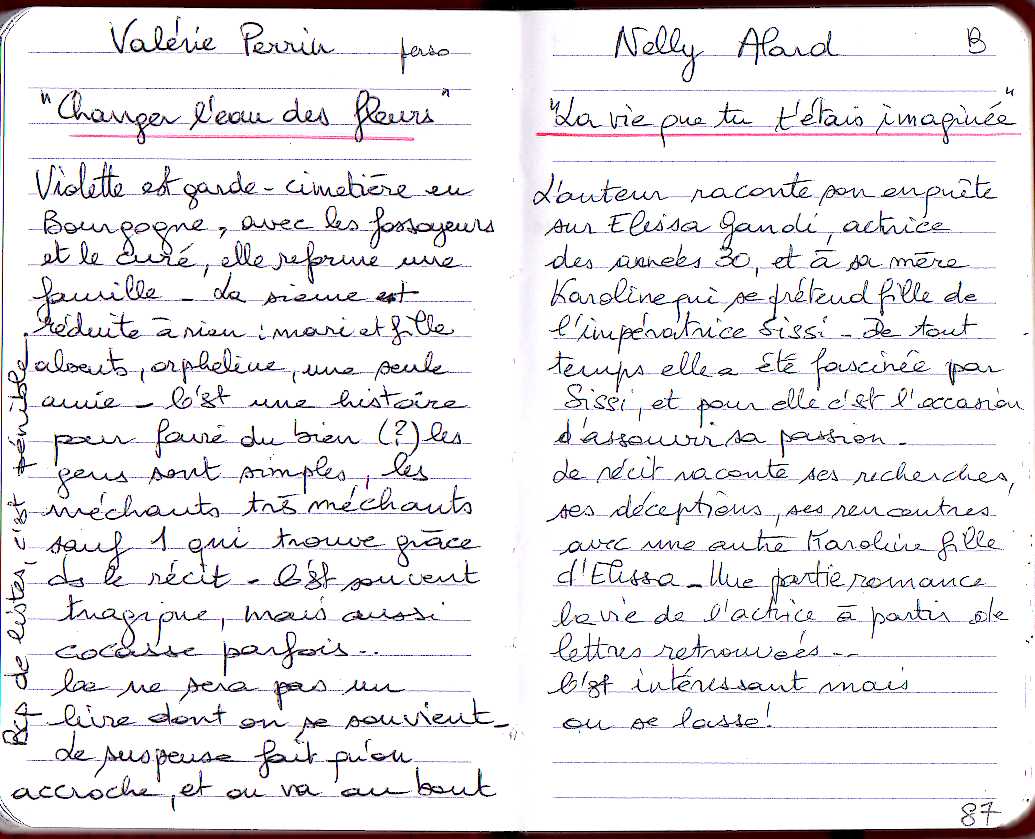 Valérie Perrin perso
"Changer l'eau des fleurs"
Violette est garde-cimetière en
Bourgogne, avec les fossoyeurs
et le curé, elle reforme une
famille - La sienne est
réduite à rien : mari et fille
absents, orpheline, une seule
amie - C'est une histoire
pour faire du bien (?) les
gens sont simples, les
méchants très méchants
sauf 1 qui trouve grâce
ds le récit - C'est souvent
tragique, mais aussi
cocasse parfois..
Ce ne sera pas un
livre dont on se souvient -
Le suspense fait qu'on
accroche, et on va au bout
Bcp de listes, c'est pénible
Nelly Alard B
"La vie que tu t'étais imaginée"
L'auteur raconte son enquête
sur Elissa Gandi, actrice
des années 30, et à sa mère
Karoline qui se prétend fille de
l'impératrice Sissi - De tout
temps elle a été fascinée par
Sissi, et pour elle c'est l'occasion
d'assouvir sa passion -
Le récit raconte ses recherches,
ses déceptions, ses rencontres
avec une autre Karoline fille
d'Elissa - Une partie romance
la vie de l'actrice à partir de
lettres retrouvées --
C'est intéressant mais
on se lasse!
87